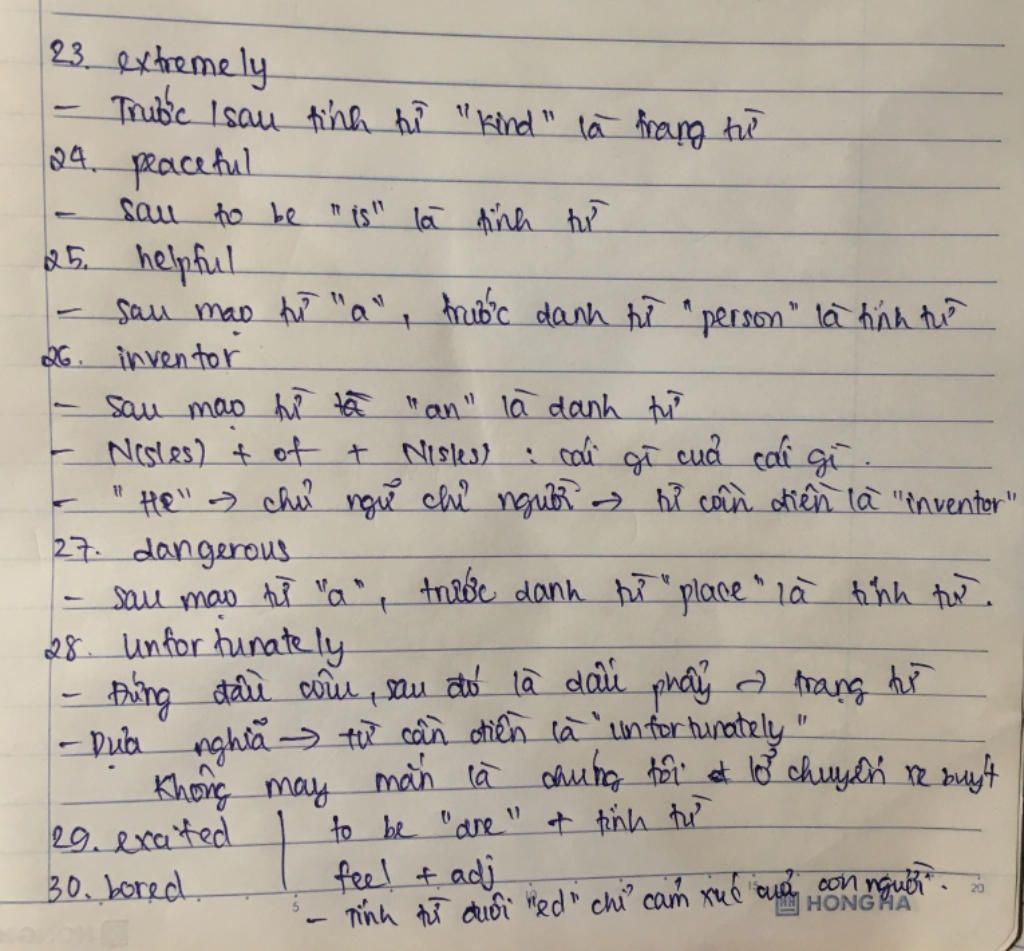 23. extremely
- Trước / sau tính từ "kind" là trạng từ
24. peaceful
- sau to be "is" là tính từ
25. helpful
- sau mạo từ "a", trước danh từ "person" là tính từ
26. inventor
- sau mạo từ "an" là danh từ
- N(s/es) + of + N(s/es) : cái gì của cái gì.
- "He" → chủ ngữ chỉ người → từ cần điền là "inventor"
27. dangerous
- sau mạo từ "a", trước danh từ "place" là tính từ.
28. unfortunately
- Đứng đầu câu, sau đó là dấu phẩy → trạng từ
- Dựa nghĩa → từ cần điền là "unfortunately"
Không may mắn là chúng tôi lỡ chuyến xe buýt
29. excited | to be "are" + tính từ
30. bored | feel + adj
- Tính từ đuôi "ed" chỉ cảm xúc của con người.
HONG HA 20